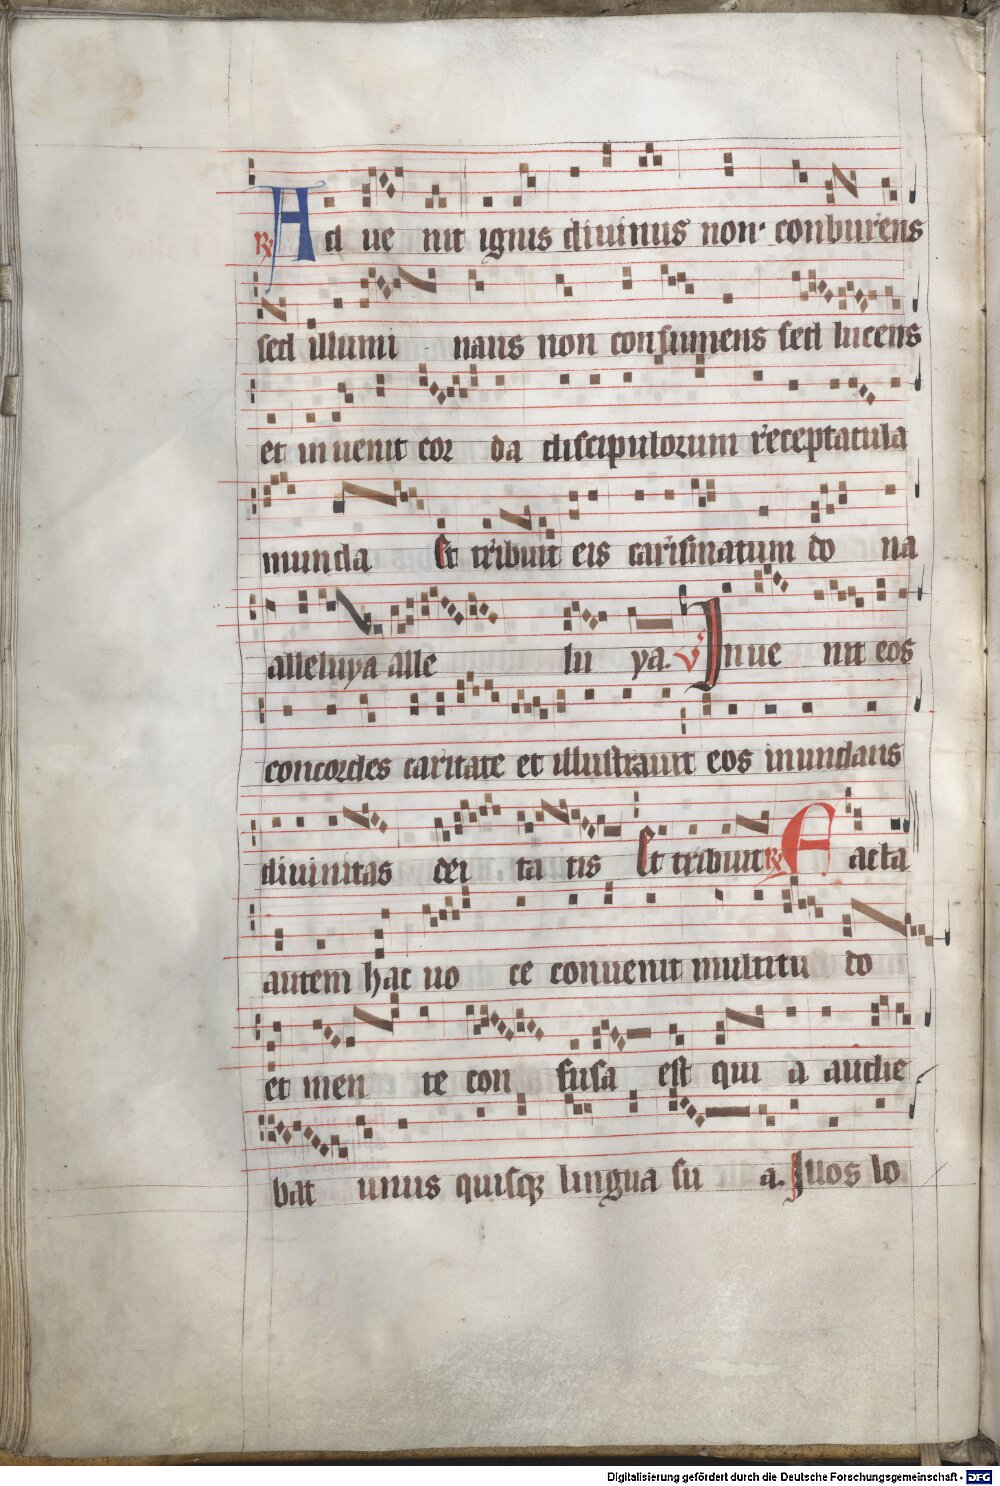 ℟ Ad ue nit ignis diuinus non conburens
sed illumi nans non consumens sed lucens
et inuenit cor da discipulorum receptatula
munda Et tribuit eis carismatum do na
alleluya alle lu ya. V Inue nit eos
concordes caritate et illustrauit eos inundans
diuinitas dei ta tis Et tribuit ℟ Facta
autem hac uo ce conuenit multitu do
et men te con fusa est qui a audie
bat unus quisqꝫ lingua su a. Illos lo
Digitalisierung gefördert durch die Deutsche Forschungsgemeinschaft - DFG